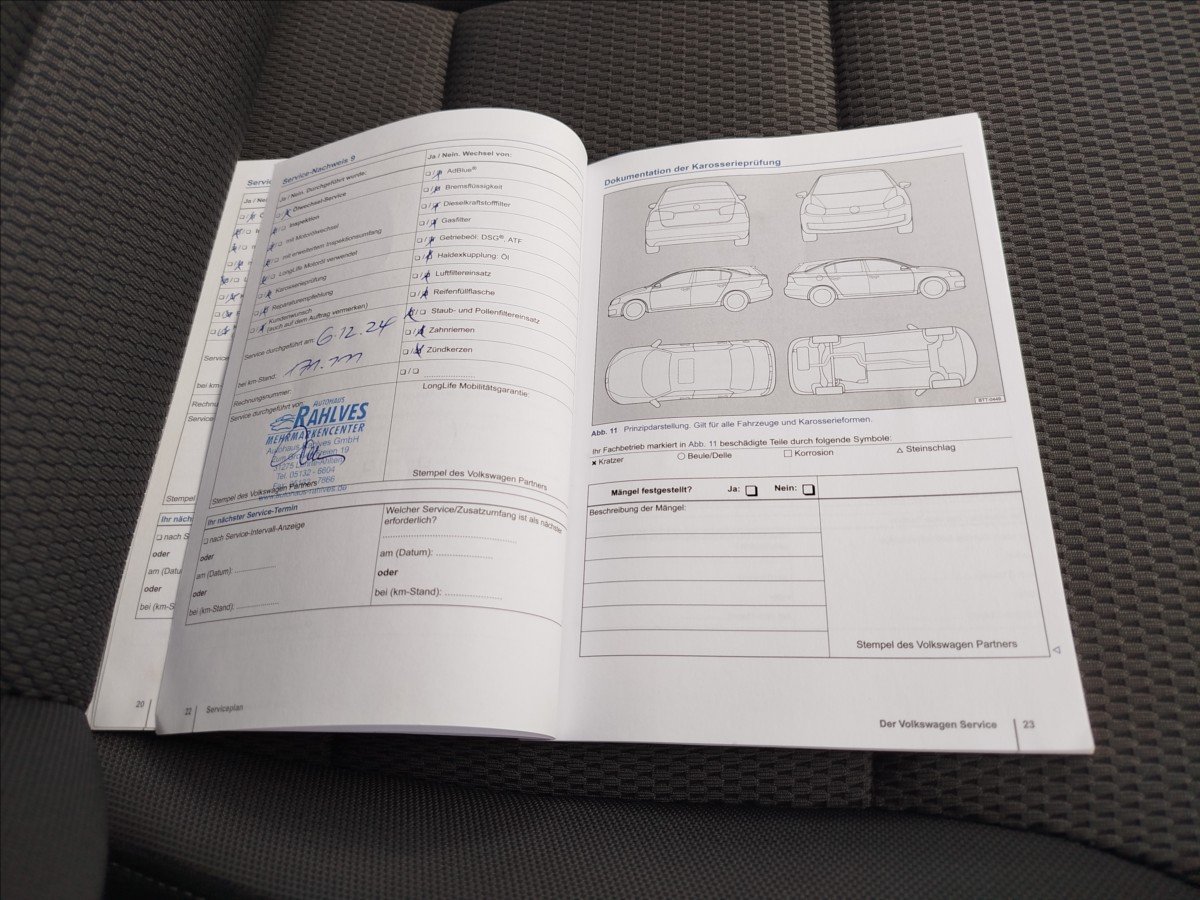 Servic
Ja / Nein
Service
bei km-
Rechnu
Service
Stempel
Ihr nächs
❑ nach S
oder
am (Datu
oder
bei (km-S
20
Service-Nachweis 9
Ja / Nein. Durchgeführt wurde:
❑ / ❑ Ölwechsel-Service
❑ / ❑ Inspektion
❑ / ❑ mit Motorölwechsel
❑ / ❑ mit erweitertem Inspektionsumfang
❑ / ❑ LongLife Motoröl verwendet
❑ / ❑ Karosserieprüfung
❑ / ❑ Reparaturempfehlung
❑ / ❑ Kundenwunsch
(auch auf dem Auftrag vermerken)
Service durchgeführt am: 6.12.24
bei km-Stand:
Rechnungsnummer:
Service durchgeführt von
AUTOHAUS
RAHLVES
MEHRMARKENCENTER
Autohaus Rahlves GmbH
Tel. 05132 - 6604
www.autohaus-rahlves.de
Stempel des Volkswagen Partners
Ja / Nein. Wechsel von:
❑ / ❑ AdBlue®
❑ / ❑ Bremsflüssigkeit
❑ / ❑ Dieselkraftstofffilter
❑ / ❑ Gasfilter
❑ / ❑ Getriebeöl: DSG®, ATF
❑ / ❑ Haldexkupplung: Öl
❑ / ❑ Luftfiltereinsatz
❑ / ❑ Reifenfüllflasche
❑ / ❑ Staub- und Pollenfiltereinsatz
❑ / ❑ Zahnriemen
❑ / ❑ Zündkerzen
❑ / ❑ ....................
LongLife Mobilitätsgarantie:
Stempel des Volkswagen Partners
Ihr nächster Service-Termin
❑ nach Service-Intervall-Anzeige
oder
am (Datum): ..............
oder
bei (km-Stand): ..............
Welcher Service/Zusatzumfang ist als nächster
erforderlich?
am (Datum): ..............
oder
bei (km-Stand): ..............
22 | Serviceplan
Dokumentation der Karosserieprüfung
BTT-0449
Abb. 11 Prinzipdarstellung. Gilt für alle Fahrzeuge und Karosserieformen.
Ihr Fachbetrieb markiert in Abb. 11 beschädigte Teile durch folgende Symbole:
× Kratzer ○ Beule/Delle □ Korrosion △ Steinschlag
Mängel festgestellt? Ja: ❑ Nein: ❑
Beschreibung der Mängel:
Stempel des Volkswagen Partners
Der Volkswagen Service | 23